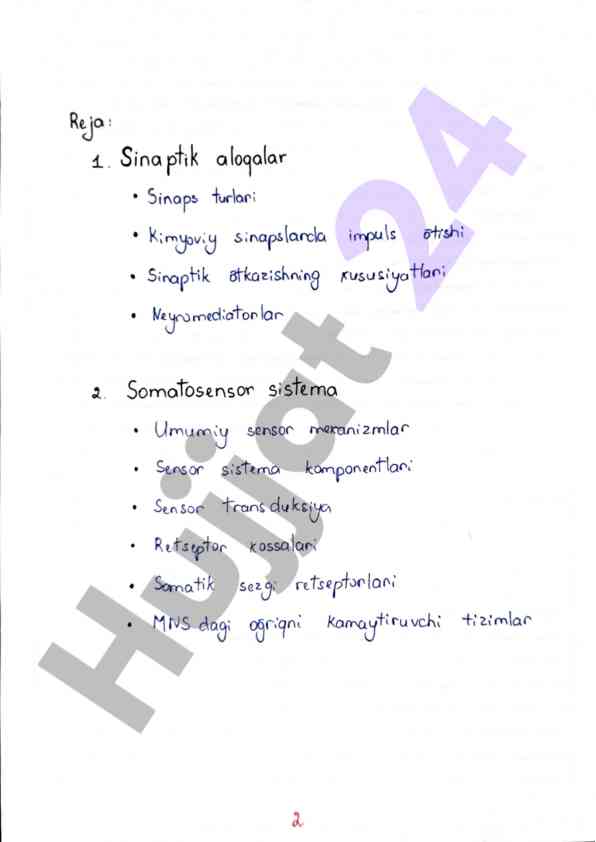 Reja:
1. Sinaptik aloqalar
• Sinaps turlari
• Kimyoviy sinapslarda impuls ötishi
• Sinaptik ötkazishning xususiyatlari
• Neyromediatorlar
2. Somatosensor sistema
• Umumiy sensor mexanizmlar
• Sensor sistema komponentlari
• Sensor transduksiya
• Retseptor xossalari
• Somatik sezgi retseptorlari
• MNS dagi oğriqni kamaytiruvchi tizimlar
Hujjat 24
2